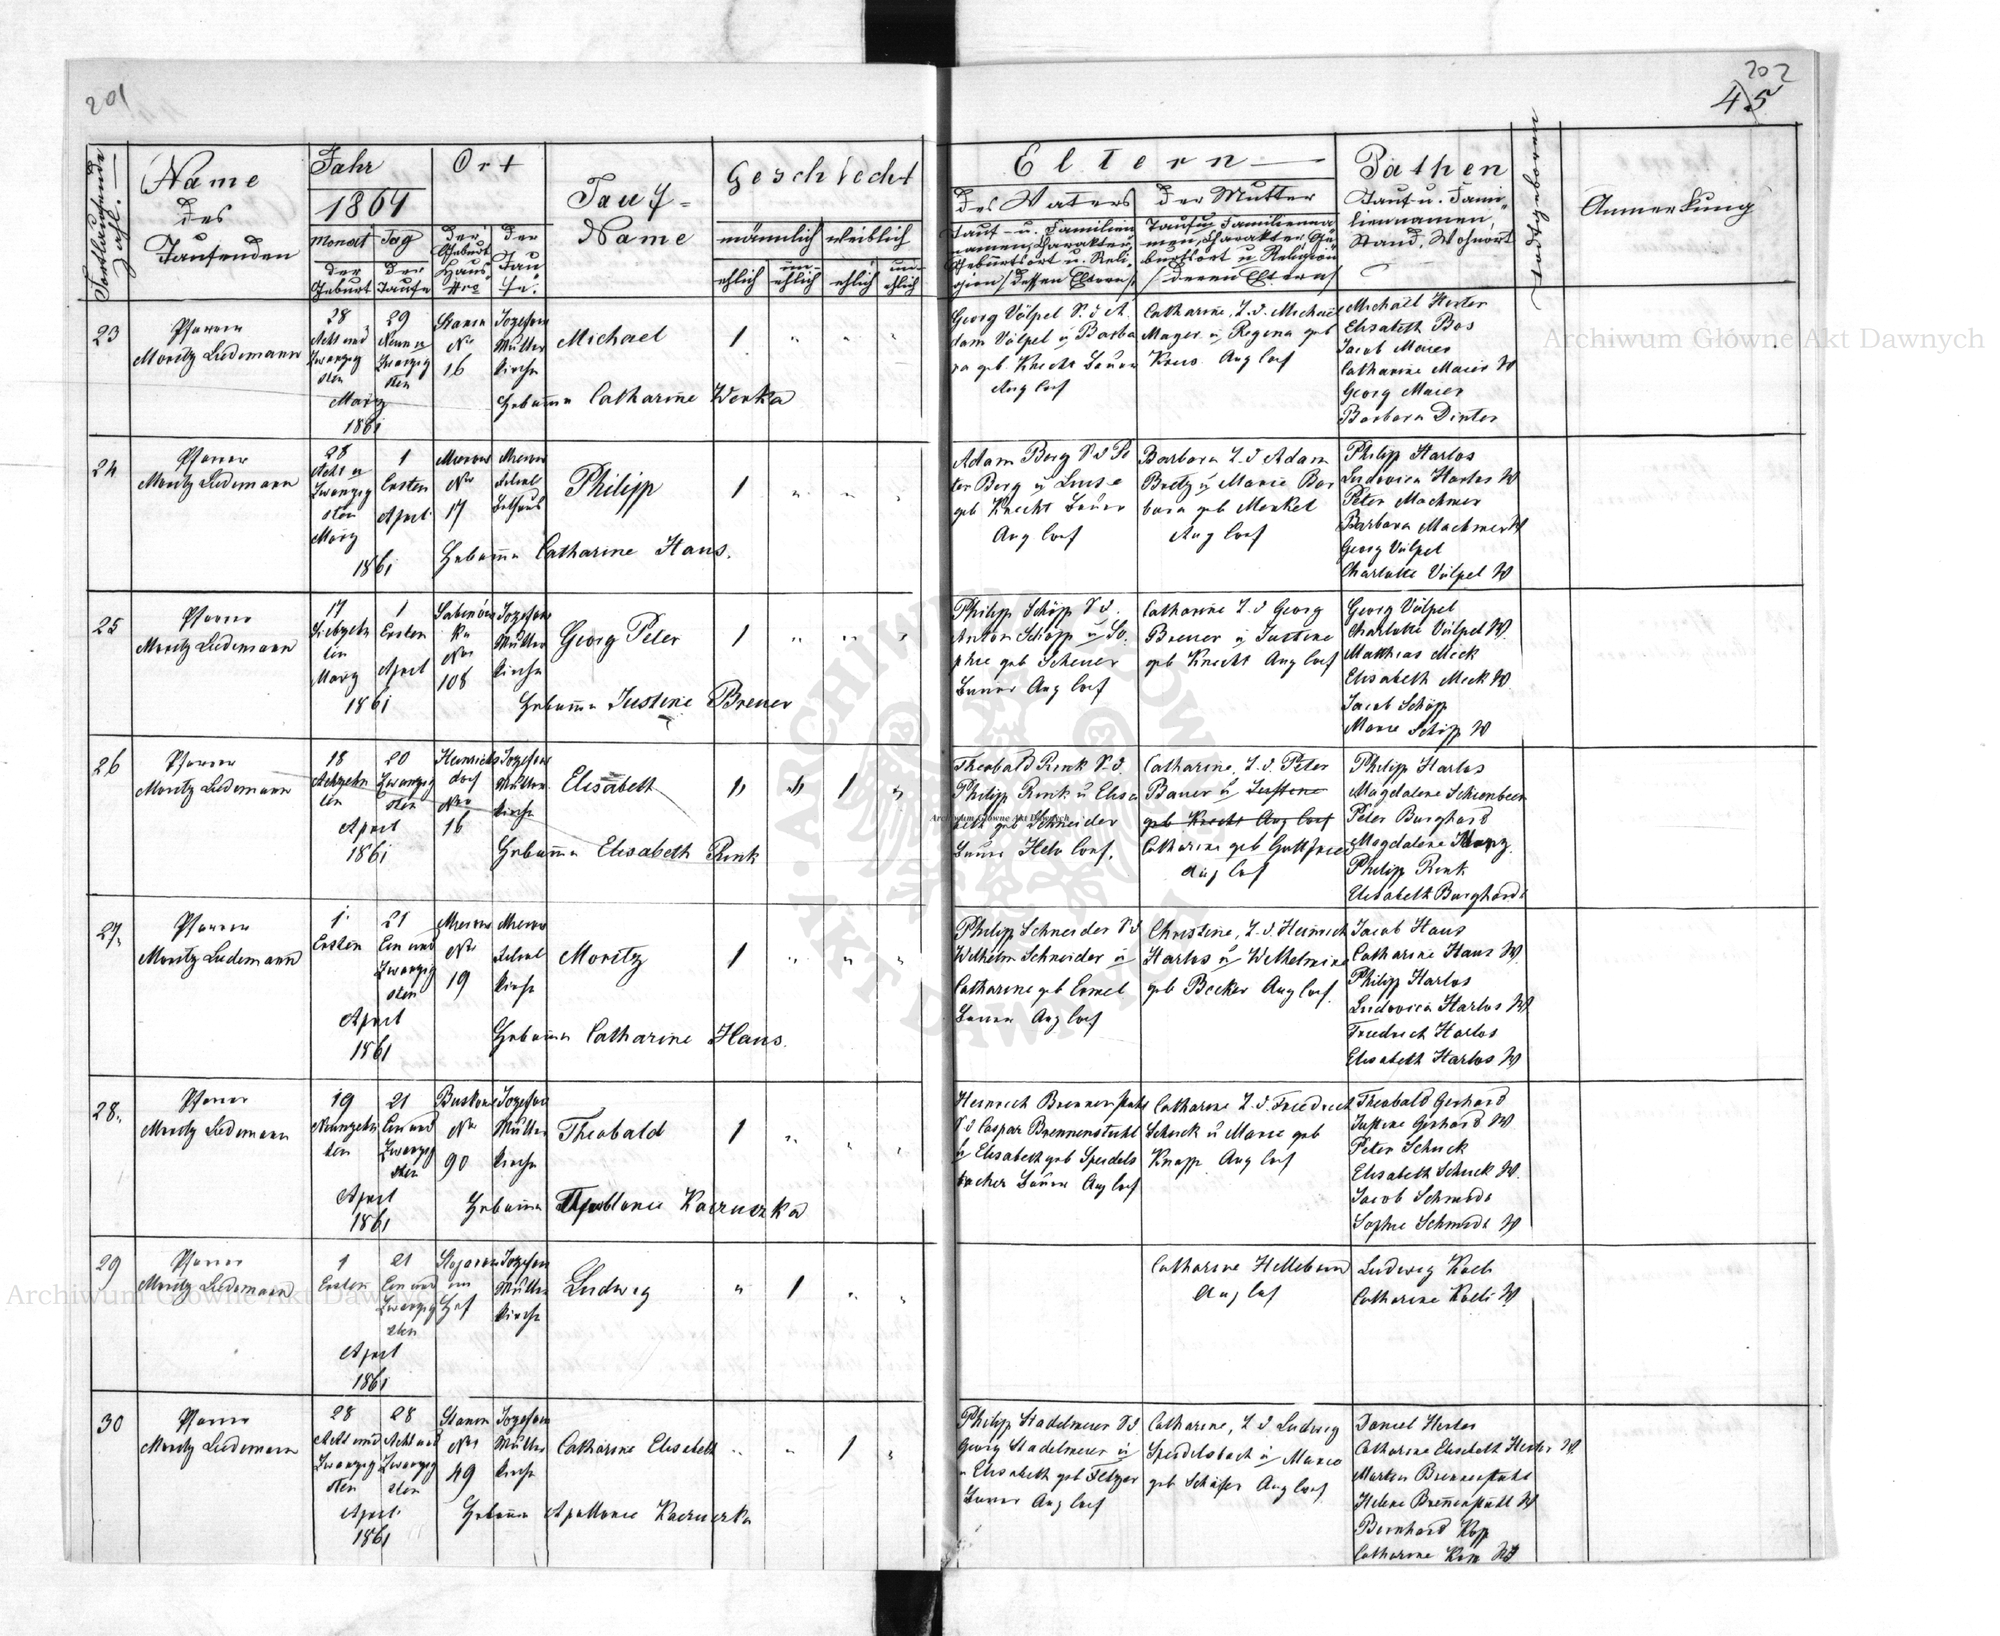 201
202
45
Fortlaufende Zahl.
Name
des
Taufenden
Jahr
1861
Monat Tag
der Geburt
der Taufe
Ort
der Geburt Haus Nro
der Taufe.
Tauf-
Name
Geschlecht
männlich weiblich
ehlich unehlich ehlich unehlich
Eltern
des Vaters
Tauf- u. Familien
namen, Charakter,
Geburtsort u. Reli-
gion / dessen Eltern /
der Mutter
Tauf u Familienna
men, Charakter Ge
burtsort u Religion
/ deren Eltern /
Pathen
Tauf u. Fami-
liennamen,
Stand, Wohnort
Todtgeboren
Anmerkung
23
Pfarrer
Moritz Ludemann
28
Acht und
Zwanzig
sten
29
Neun u
Zwanzig
sten
März
1861
No
16
Mutter
Kirche
Michael
1
Hebamme Catharine Werka
Georg Völpel S. d A
dam Völpel u Barba
ra geb. Knecht Bauer
Aug Conf
Catharine, T. d. Michael
Mayer u Regina geb
Kreis Aug Conf
Michael Hester
Elisabeth Bos
Jacob Maier
Catharine Maier W
Georg Maier
Barbara Dinter
24
Pfarrer
Moritz Ludemann
28
Acht u
Zwanzig
sten
März
1
Ersten
April
1861
No
17
Filial
Bethaus
Philipp
1
Hebamme Catharine Haus.
Adam Berg S d Pe
ter Berg u Luise
geb Knecht Bauer
Aug Conf
Barbara T. d Adam
Bretz u Marie Bar
bara geb Menket
Aug Conf
Philipp Harlos
Ludovica Harlos W
Peter Machmer
Barbara Machmer W
Georg Völpel
Charlotte Völpel W
25
Pfarrer
Moritz Ludemann
17
Siebzehn
ten
März
1
Ersten
April
1861
No
108
Mutter
Kirche
Georg Peter
1
Hebamme Justine Breuer
Philipp Schöpp S d.
Anton Schöpp u So
phie geb Scheuer
Bauer Aug Conf
Catharine T. d Georg
Breuer u Justine
geb Knecht Aug Conf
Georg Völpel
Charlotte Völpel W.
Matthias Meck
Elisabeth Meck W.
Jacob Schöpp
Marie Schöpp W
26
Pfarrer
Moritz Ludemann
18
Achtzehn
ten
20
Zwanzig
sten
April
1861
Heinrichs
dorf
Nro
16
Mutter
Kirche
Elisabeth
1
Hebamme Elisabeth Rink
Theobald Rink S. d.
Philipp Rink u Elisa
beth geb Schneider
Bauer Helv Conf.
Catharine, T. d. Peter
Bauer u Justine
geb Knecht Aug Conf
Catharine geb Gottfried
Aug Conf
Philipp Harlos
Magdalene Schienbein
Peter Burghard
Magdalene Harz
Philipp Rink
Elisabeth Burghardt
27.
Pfarrer
Moritz Ludemann
1.
Ersten
21
Ein und
Zwanzig
sten
April
1861
No
19
Filial
Kirche
Moritz
1
Hebamme Catharine Haus.
Philipp Schneider S d
Wilhelm Schneider u
Catharine geb Ermel
Bauer Aug Conf
Christine, T. d. Heinrich
Harlos u Wilhelmine
geb Becker Aug Conf.
Jacob Haus
Catharine Haus W.
Philipp Harlos
Ludovica Harlos W
Friedrich Harlos
Elisabeth Harlos W
28.
Pfarrer
Moritz Ludemann
19
Neunzehn
ten
21
Ein und
Zwanzig
sten
April
1861
No
90
Mutter
Kirche
Theobald
1
Hebamme Apollonie Kaczurzka
Heinrich Brennenstuhl
S d Caspar Brennenstuhl
u Elisabeth geb Speidels
bacher Bauer Aug Conf
Catharine T. d. Friedrich
Schuck u Marie geb
Knapp Aug Conf
Theobald Gerhard
Justine Gerhard W.
Peter Schuck
Elisabeth Schuck W.
Jacob Schmidt
Sophie Schmidt W
29
Pfarrer
Moritz Ludemann
1
Ersten
21
Ein und
Zwanzig
sten
April
1861
im
Hof
Mutter
Kirche
Ludwig
1
Aug Conf
Ludwig Kolb
Catharine Kolb W
30
Pfarrer
Moritz Ludemann
28
Acht und
Zwanzig
sten
28
Acht und
Zwanzig
sten
April
1861
No
49
Mutter
Kirche
Catharine Elisabeth
1
Hebamme Apollonie Kaczurzka
Philipp Stadelmeier S d.
Georg Stadelmeier u
Elisabeth geb Fetzer
Bauer Aug Conf
Catharine, T. d Ludwig
Speidelsbach u Marie
geb Schäfer Aug Conf.
Daniel Hester
Catharine Elisabeth Hester W.
Martin Brennenstuhl
Helene Brennenstuhl W
Bernhard Kopp
Catharine Kopp W
Archiwum Główne Akt Dawnych
Archiwum Główne Akt Dawnych
Archiwum Główne Akt Dawnych